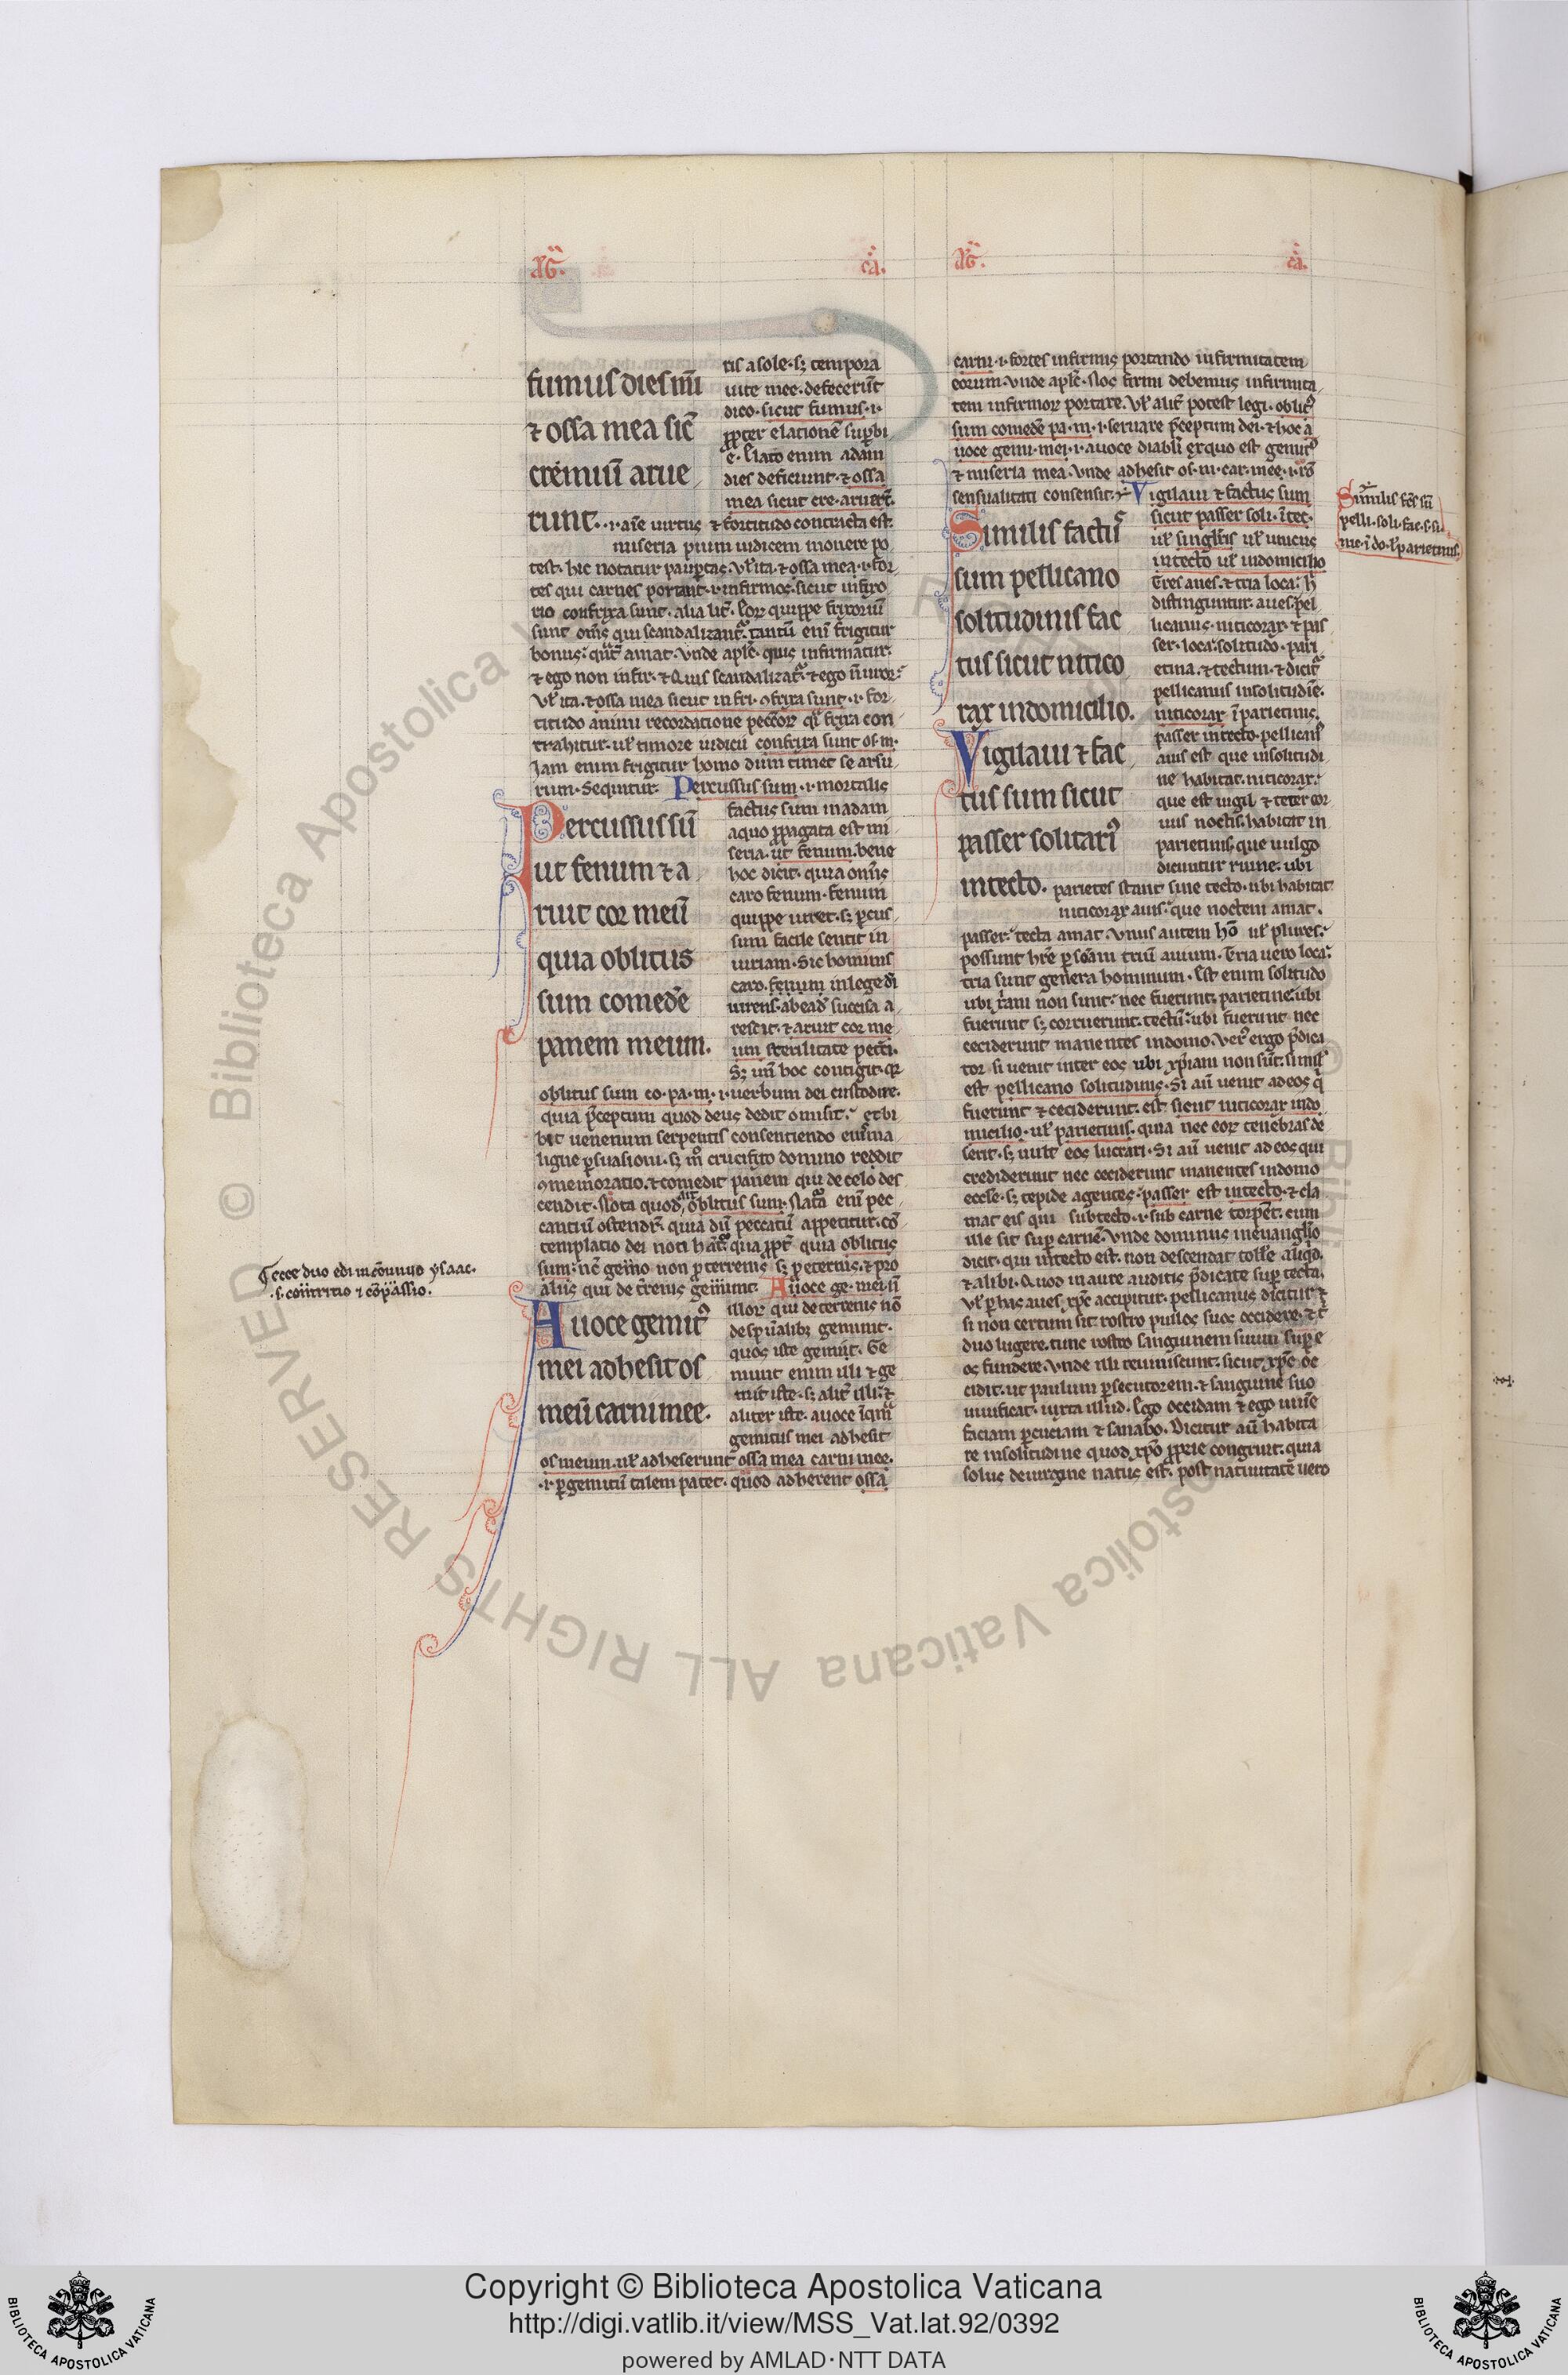 fumus dies mī
⁊ ossa mea sic̄
cremiū arue
runt.
ris a sole. sꝫ tempora
uite mee. defecerūt
dico. sicut fumus. i.
ꝓpter elationē supbi
e. Elato enim adam
dies deficiunt. ⁊ ossa
mea sicut cre. aruert̄.
.i. aīe uirtus ⁊ fortitudo contracta est.
miseria pium iudicem mouere po
test. hic notatur paupertas. Vl̄ ita. ⁊ ossa mea .i. for
tes qui carnes portant .i. infirmos. sicut in frixo
rio confrixa sunt. alia lit̄. Eoꝝ quippe frixoriū
sunt om̄s qui scandalizant᷑. tantū enī frigitur
bonus. quāt̄ amat. Vnde apl̄s. quis infirmatur.
⁊ ego non infir. ⁊ Quis scandalizat᷑. ⁊ ego n̄ uror.
Vl̄ ita. ⁊ ossa mea sicut in fri. ꝯfrixa sunt .i. for
titudo animi recordatione pecc̄oꝝ qͥ frixa con
trahitur. ul̄ timore iudicii confrixa sunt os. m.
Jam enim frigitur homo dum timet se arsu
rum. Sequitur. Percussus sum .i. mortalis
Percussus sū
ut fenum ⁊ a
ruit cor meū
quia oblitus
sum comedē
panem meum.
factus sum in adam
a quo ꝓpagata est mi
seria. ut fenum. bene
hoc dicit. quia om̄is
caro fenum. fenum
quippe uiret. sꝫ ꝑcus
sum facile sentit in
iuriam. Sic hominis
caro. fenum in lege dī
uirens. ab ea d̄ succisa a
rescit. ⁊ aruit cor me
um sterilitate pecc̄i.
Sꝫ un̄ hoc contigit. qꝛ
oblitus sum co. pa. m. .i. uerbum dei custodire.
quia p̄ceptum quod deus dedit omisit. et bi
bit uenenum serpentis consentiendo eius ma
ligne ꝑsuasioni. sꝫ m̊ crucifixo domino reddit᷑
ꝯmemoratio. ⁊ comedit panem qui de celo des
cendit. Nota quod ait oblitus sum. Nat̄a enī pec
cantiū ostendit᷑. quia dū peccatū appetitur. cō
templatio dei non hēt᷑. qua ꝓpt̄ quia oblitus
sum. nc̄ gemo non ꝑ terrenis sꝫ ꝑ eternis. ⁊ pro
aliis qui de t̄renis gemunt. A uoce ge. mei. n̄
A uoce gemitꝰ
mei adhesit os
meū carni mee.
illoꝝ qui de terrenis nō
de spūalibꝫ gemunt.
quos iste gemit. Ge
munt enim illi ⁊ ge
mit iste. sꝫ alit̄ illi. ⁊
aliter iste. a uoce inqͣm
gemitus mei adhesit
os meum. ul̄ adheserunt ossa mea carni mee.
.i. ꝑ gemitū talem patet. quod adherent ossa
carni .i. fortes infirmis portando infirmitatem
eorum. vnde apl̄s. Nos firmi debemus infirmita
tem infirmoꝝ portare. Vl̄ alit̄ potest legi. oblitꝰ
sum comedē pa. m. .i. seruare p̄ceptum dei. ⁊ hoc a
uoce gemi. mei .i. a uoce diaboli ex quo est gemitꝰ
⁊ miseria mea. Vnde adhesit os. m. car. mee .i. rō
sensualitati consensit. Vigilaui ⁊ factus sum
Similis factꝰ
sum pellicano
solitudinis fac
tus sicut nitico
rax in domicilio.
Vigilaui ⁊ fac
tus sum sicut
passer solitariꝰ
in tecto.
sicut passer soli. in tec.
ul̄ singl̄ris ul̄ unicus
in tecto ul̄ in domicilio
Tres aues. ⁊ tria loca. h̄
distinguntur. aues. pel
licanus. niticorax. ⁊ pas
ser. loca. solitudo. pari
etina. ⁊ tectum. ⁊ dicit᷑
pellicanus in solitudīe.
niticorax ī parietinis.
passer in tecto. pellicanꝰ
auis est que in solitudi
ne habitat. niticorax.
que est uigil ⁊ teter cor
uus noctis. habitat in
parietinis. que uulgo
dicuntur ruine. ubi
parietes stant sine tecto. ubi habitat
niticorax auis. que noctem amat.
passer. tecta amat. Vnus autem hō ul̄ plures.
possunt hr̄e ꝑsonam triū auium. Tria uero loca.
tria sunt genera hominum. Est enim solitudo
ubi xp̄iani non sunt. nec fuerunt. parietine. ubi
fuerunt sꝫ corruerunt. tectū. ubi fuerunt nec
ceciderunt manentes in domo. Verꝰ ergo p̄dica
tor si uenit inter eos ubi xp̄iani non sūt. similis
est pellicano solitudinis. Si aū uenit ad eos qͥ
fuerunt ⁊ ceciderunt. est sicut niticorax in do
micilio. ul̄ parietinis. quia nec eoꝝ tenebras de
serit. sꝫ uult eos lucrari. Si aū uenit ad eos qui
crediderunt nec ceciderunt manentes in domo
eccl̄ie. sꝫ tepide agentes. passer est in tecto. ⁊ cla
mat eis qui sub tecto .i. sub carne torpēt. cum
ille sit sup carnē. Vnde dominus in euangl̄io
dicit. qui in tecto est. non descendat tolle aliqd̄.
⁊ alibi. Quod in aure auditis p̄dicate sup tecta.
Vl̄ ꝑ has aues xp̄c accipitur. pellicanus dicitur ⁊
si non certum sit. rostro pullos suos occidere. ⁊ t̄
duo lugere. tunc rostro sanguinem suum sup e
os fundere. Vnde illi reuiuiscunt. sicut xp̄c oc
cidit. ut paulum ꝑsecutorem. ⁊ sanguine suo
uiuificat. iuxta illud. Ego occidam ⁊ ego uiuē
faciam ꝑcuciam ⁊ sanabo. Dicitur aū habita
re in solitudine quod xp̄o ꝓprie congruit. quia
solus de uirgine natus est. post natiuitatē uero
Similis fc̄s sū
pelli. soli. fac. s. si.
nic. ī do. ul̄ parietinis.
Ecce duo edi in cōuiuio ysaac.
.s. contritio ⁊ cōpassio.
Copyright © Biblioteca Apostolica Vaticana
http://digi.vatlib.it/view/MSS_Vat.lat.92/0392
powered by AMLAD·NTT DATA
BIBLIOTECA APOSTOLICA VATICANA
BIBLIOTECA APOSTOLICA VATICANA
© Biblioteca Apostolica Vaticana ALL RIGHTS RESERVED